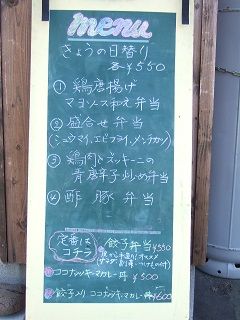 menu
きょうの日替り
各¥550
① 鶏唐揚げ
マヨソース和え弁当
② 盛合せ弁当
(シュウマイ、エビフライ、メンチカツ)
③ 鶏肉とズッキーニの
青唐辛子炒め弁当
④ 酢豚弁当
定番は
コチラ
餃子弁当¥550
ココナッツキーマカレー丼 ¥500
餃子入りココナッツキーマカレー丼¥600